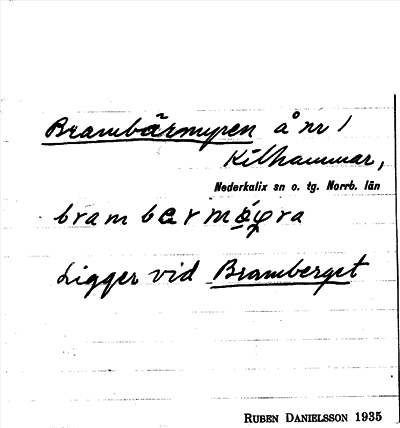 Brambärmyren å nr 1
Kilhammar,
Nederkalix sn o. tg. Norrb. län
Ligger vid Bramberget
RUBEN DANIELSSON 1935